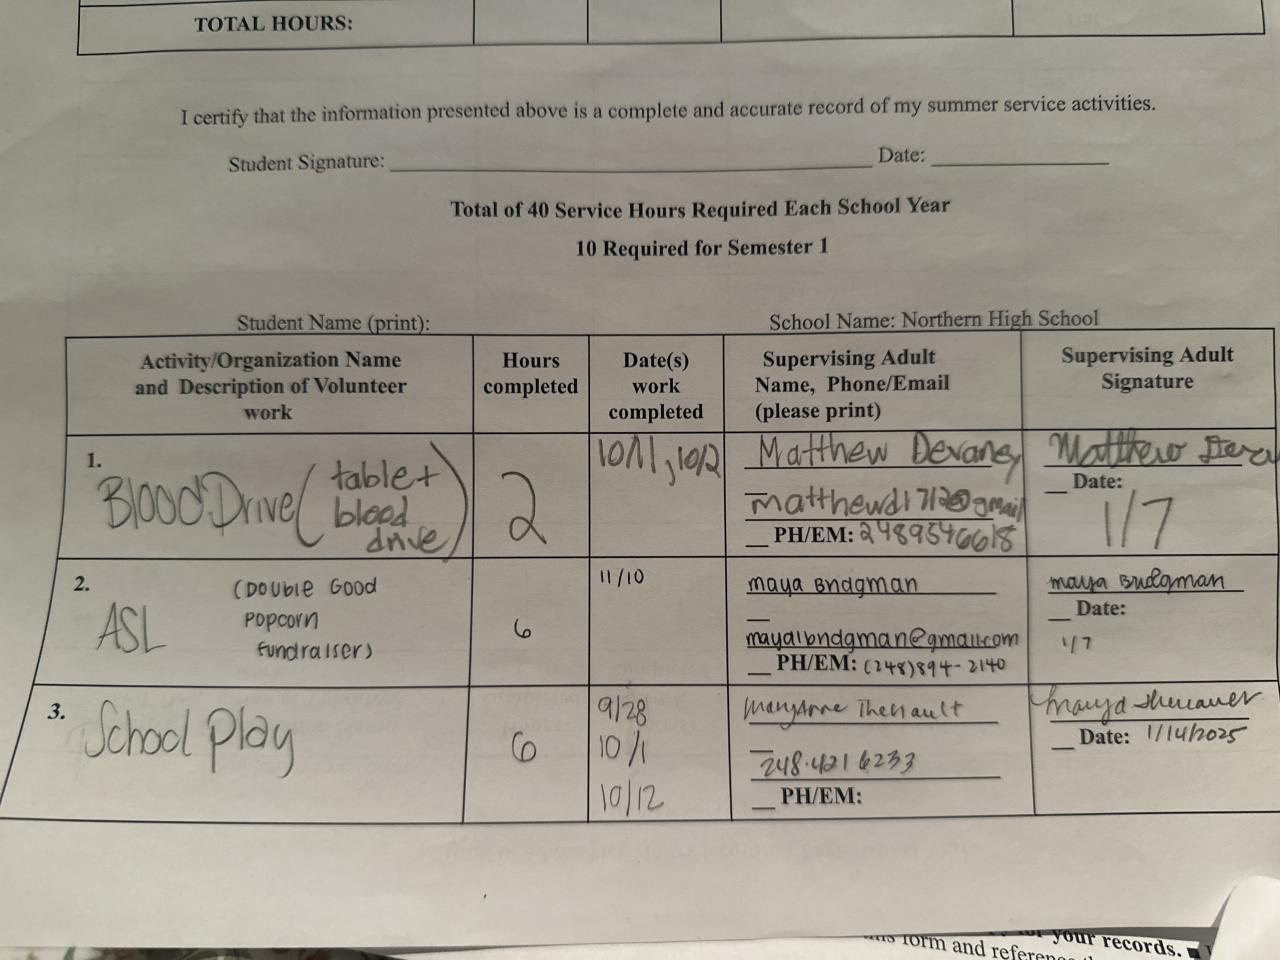 TOTAL HOURS:
I certify that the information presented above is a complete and accurate record of my summer service activities.
Student Signature: Date:
Total of 40 Service Hours Required Each School Year
10 Required for Semester 1
Student Name (print): School Name: Northern High School
Activity/Organization Name and Description of Volunteer work
Hours completed
Date(s) work completed
Supervising Adult Name, Phone/Email (please print)
Supervising Adult Signature
1.
Blood Drive (table + blood drive)
2
10/11, 10/2
Matthew Devaney
matthewd1712@gmail
PH/EM: 2489546618
Matthew
Date:
1/7
2.
ASL
(Double Good
Popcorn
fundraisers)
6
11/10
maya Bridgman
mayalbridgman@gmail.com
PH/EM: (248)894-2140
maya Bridgman
Date:
1/7
3.
School Play
6
9/28
10/1
10/12
MaryAnne Theriault
248.421 6233
PH/EM:
Date: 1/14/2025
your records.
form and